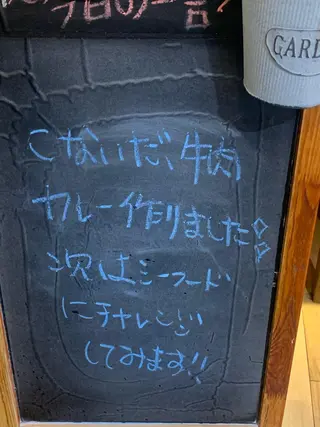 今日の一言
こないだ、牛肉
カレー作りました
次はシーフード
にチャレンジ
してみます!!
GARD